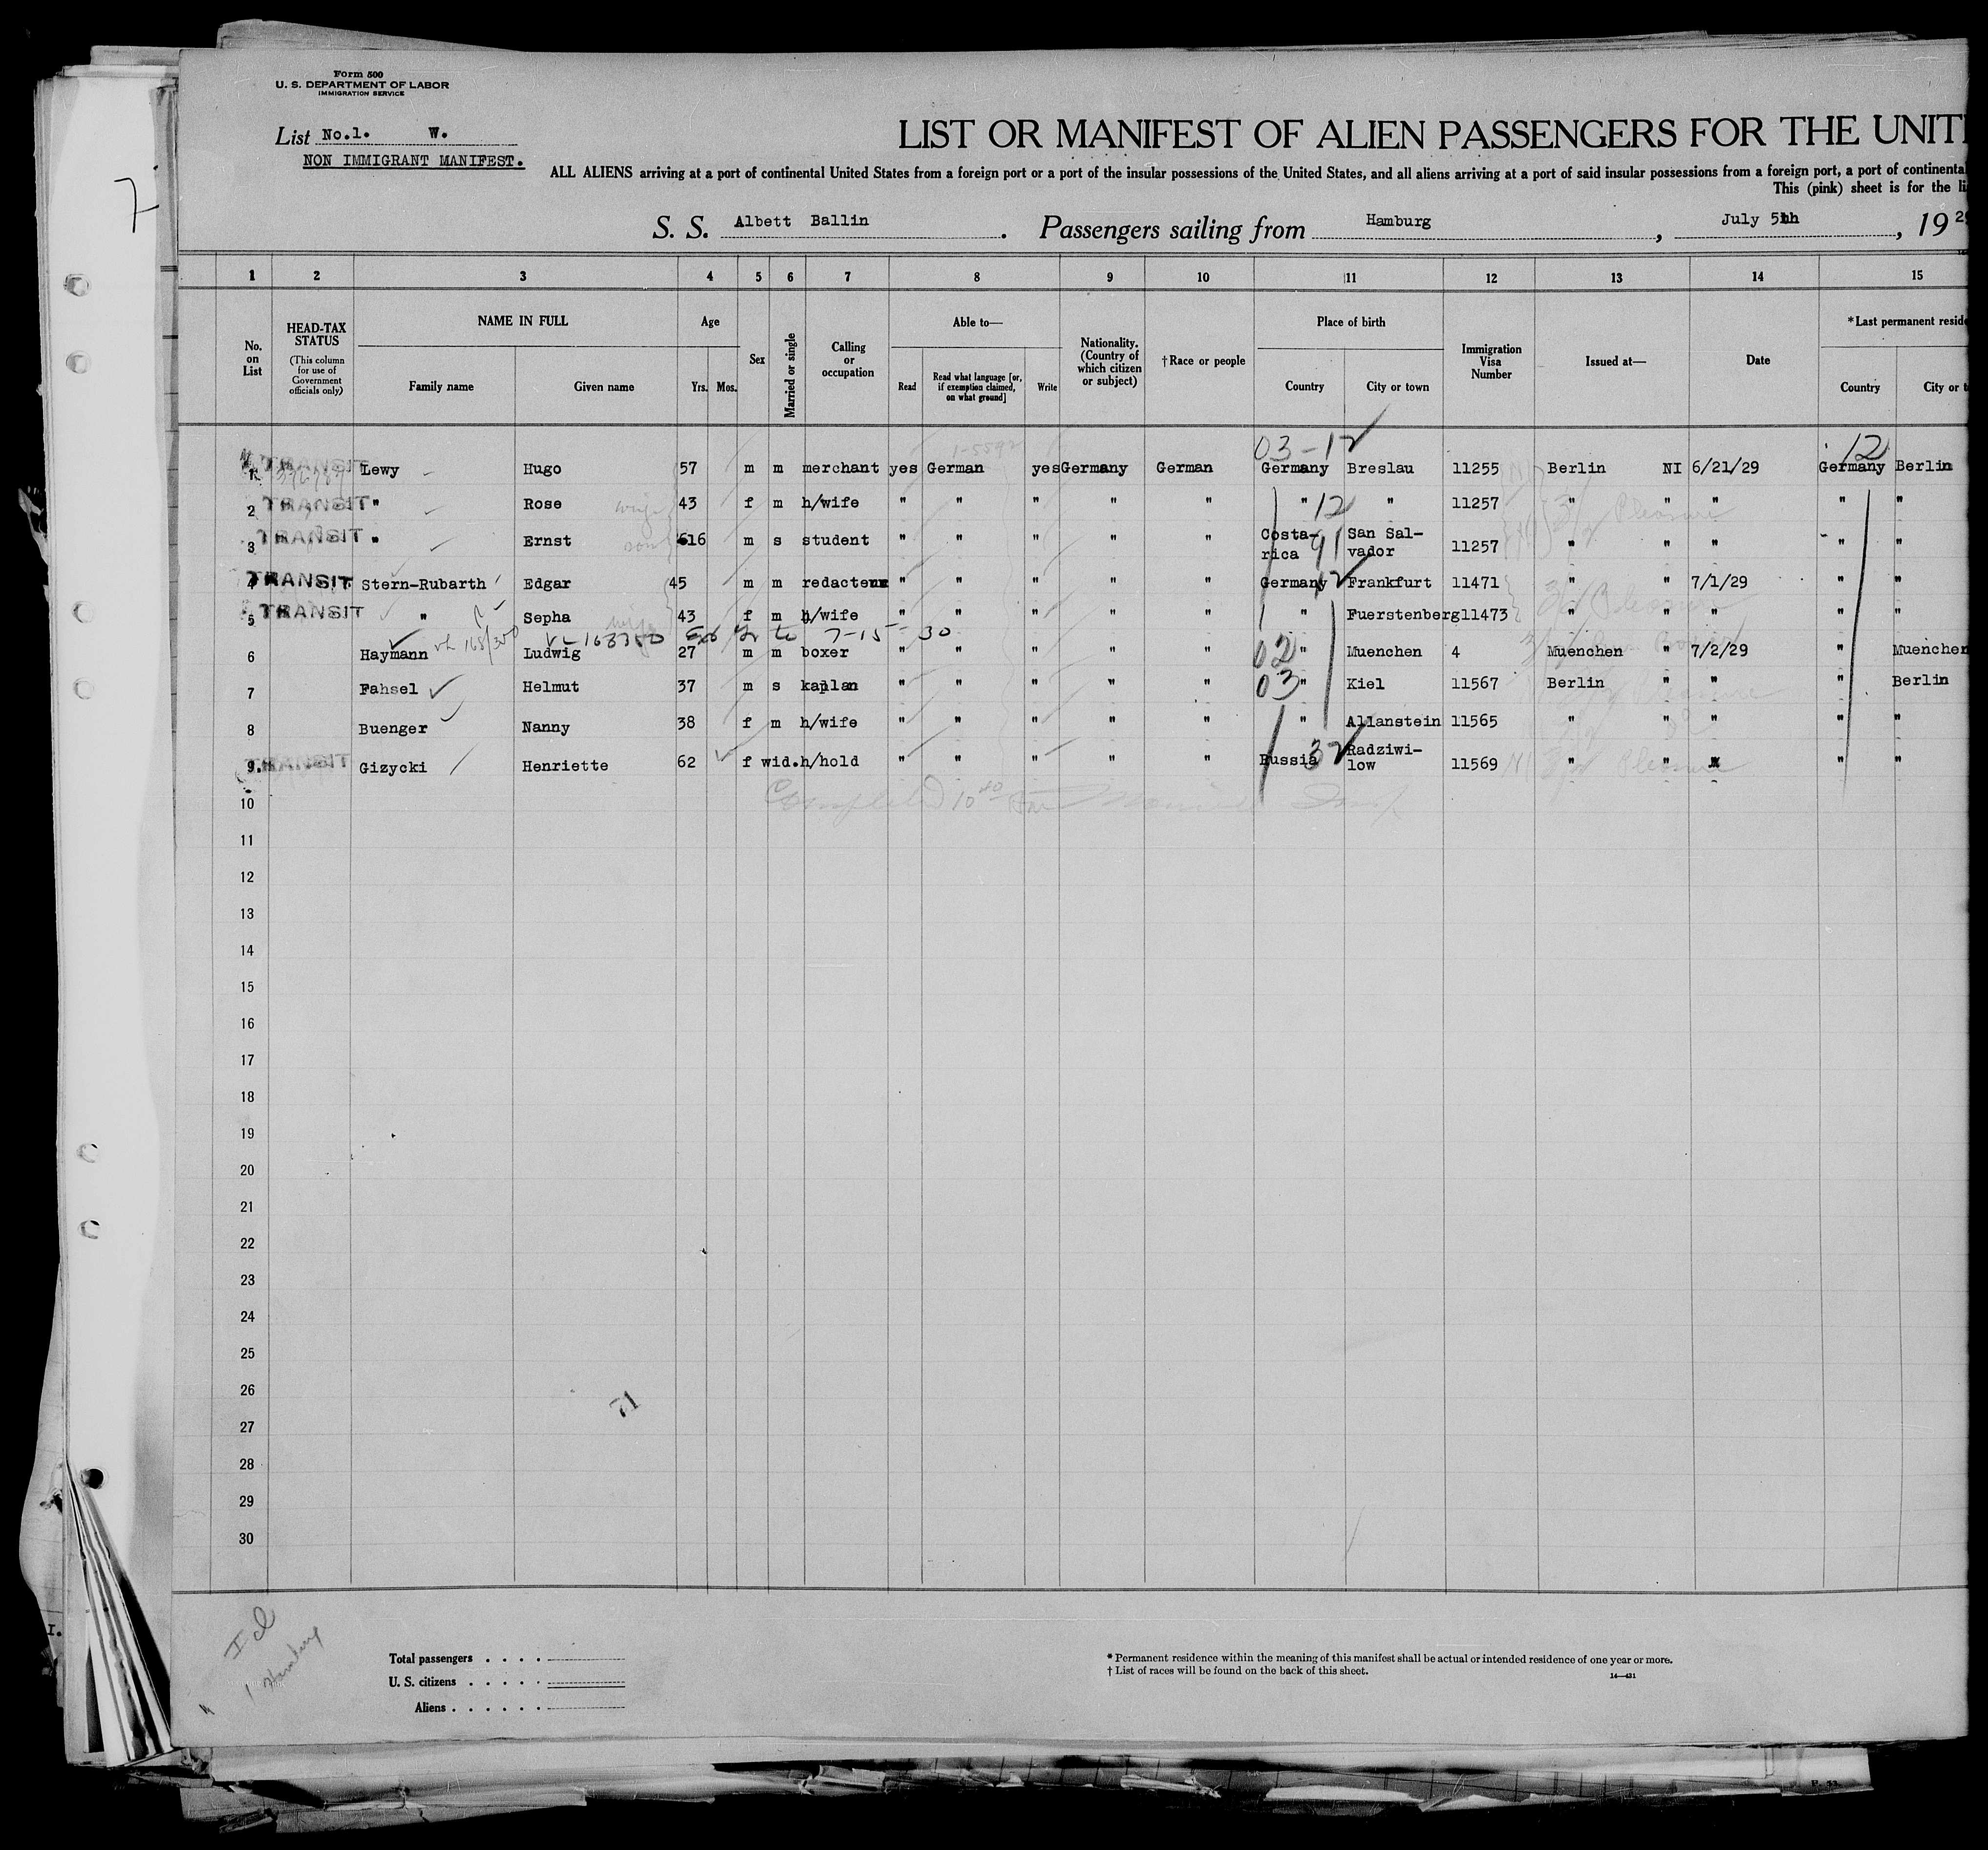 Form 500
U. S. DEPARTMENT OF LABOR
IMMIGRATION SERVICE
List No.1. W.
NON IMMIGRANT MANIFEST.
7
LIST OR MANIFEST OF ALIEN PASSENGERS FOR THE UNIT
ALL ALIENS arriving at a port of continental United States from a foreign port or a port of the insular possessions of the United States, and all aliens arriving at a port of said insular possessions from a foreign port, a port of continental
This (pink) sheet is for the li
S. S. Albett Ballin . Passengers sailing from Hamburg , July 5th , 1929
1 2 3 4 5 6 7 8 9 10 11 12 13 14 15
No. on List
HEAD-TAX STATUS (This column for use of Government officials only)
NAME IN FULL Family name Given name
Age Yrs. Mos.
Sex
Married or single
Calling or occupation
Able to— Read Read what language [or, if exemption claimed, on what ground] Write
Nationality. (Country of which citizen or subject)
†Race or people
Place of birth Country City or town
Immigration Visa Number
Issued at—
Date
*Last permanent reside Country City or t
03-12 12
1 TRANSIT Lewy Hugo 57 m m merchant yes German yes Germany German Germany Breslau 11255 Berlin NI 6/21/29 Germany Berlin
2 TRANSIT " Rose wife 43 f m h/wife " " " " " " 12 " 11257 " " " " "
3 TRANSIT " Ernst son 16 m s student " " " " " Costa-rica 91 San Sal-vador 11257 " " " " "
4 TRANSIT Stern-Rubarth Edgar 45 m m redacteur " " " " " Germany 12 Frankfurt 11471 " " 7/1/29 " "
5 TRANSIT " Sepha wife 43 f m h/wife " " " " " " Fuerstenberg 11473 " " " " "
VL 163350 Ext to 7-15-30
6 Haymann Ludwig 27 m m boxer " " " " " 02 " Muenchen 4 Muenchen " 7/2/29 " Muenchen
7 Fahsel Helmut 37 m s kaplan " " " " " 03 " Kiel 11567 Berlin " " " Berlin
8 Buenger Nanny 38 f m h/wife " " " " " " Allanstein 11565 " " " " "
9. TRANSIT Gizycki Henriette 62 f wid. h/hold " " " " " Russia 32 Radziwi-low 11569 " " " " "
10
11
12
13
14
15
16
17
18
19
20
21
22
23
24
25
26
71
27
28
29
30
Total passengers . . . .
U. S. citizens . . . . .
Aliens . . . . . .
* Permanent residence within the meaning of this manifest shall be actual or intended residence of one year or more.
† List of races will be found on the back of this sheet.
14—431